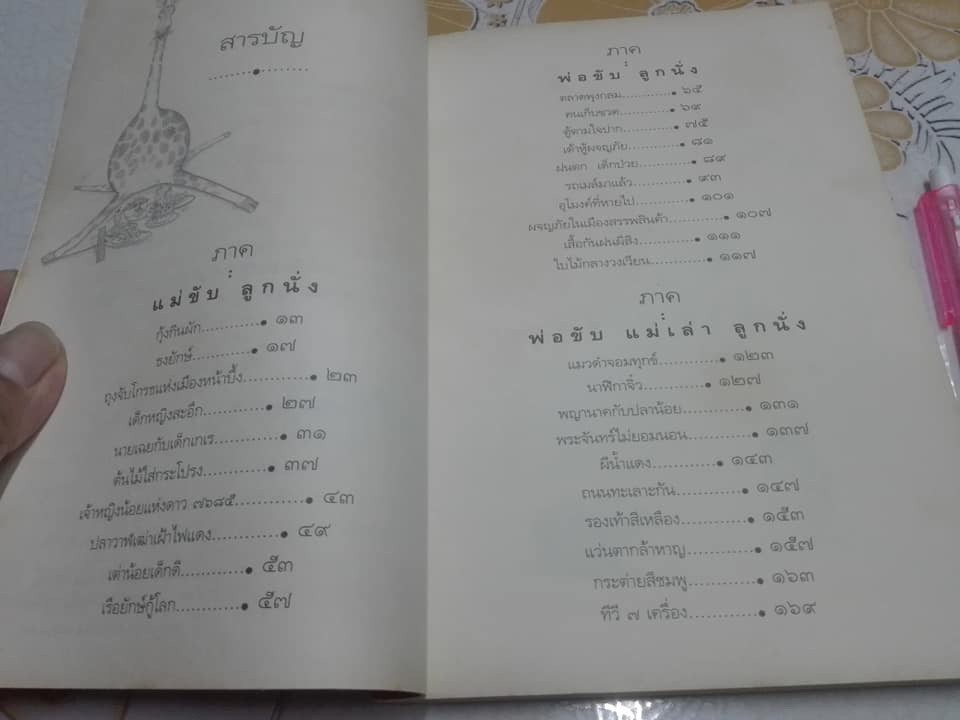 สารบัญ
ภาค
แม่ขับ ลูกนั่ง
กุ้งกินผัก............● ๑๓
ธงยักษ์............● ๑๗
ถุงจับโกรธแห่งเมืองหน้าบึ้ง............● ๒๓
เด็กหญิงสะอึก............● ๒๗
นายเฉยกับเด็กเกเร............● ๓๑
ต้นไม้ใส่กระโปรง............● ๓๗
เจ้าหญิงน้อยแห่งดาว ๗๖๘๕............● ๔๓
ปลาวาฬเฒ่าเฝ้าไฟแดง............● ๔๙
เต่าน้อยเด็กดี............● ๕๓
เรือยักษ์กู้โลก............● ๕๗
ภาค
พ่อขับ ลูกนั่ง
ตลาดพุงกลม............● ๖๕
คนเก็บขวด............● ๖๙
ตู้ตามใจปาก............● ๗๕
เต้าหู้ผจญภัย............● ๘๑
ฝนตก เด็กป่วย............● ๘๙
รถเมล์มาแล้ว............● ๙๓
อุโมงค์ที่หายไป............● ๑๐๑
ผจญภัยในเมืองสรรพสินค้า............● ๑๐๗
เสื้อกันฝนผีสิง............● ๑๑๑
ใบไม้กลางวงเวียน............● ๑๑๗
ภาค
พ่อขับ แม่เล่า ลูกนั่ง
แมวดำจอมทุกข์............● ๑๒๓
นาฬิกาจิ๋ว............● ๑๒๗
พญานาคกับปลาน้อย............● ๑๓๑
พระจันทร์ไม่ยอมนอน............● ๑๓๗
ผีน้ำแดง............● ๑๔๓
ถนนทะเลาะกัน............● ๑๔๗
รองเท้าสีเหลือง............● ๑๕๓
แว่นตากล้าหาญ............● ๑๕๗
กระต่ายสีชมพู............● ๑๖๓
ทีวี ๗ เครื่อง............● ๑๖๙